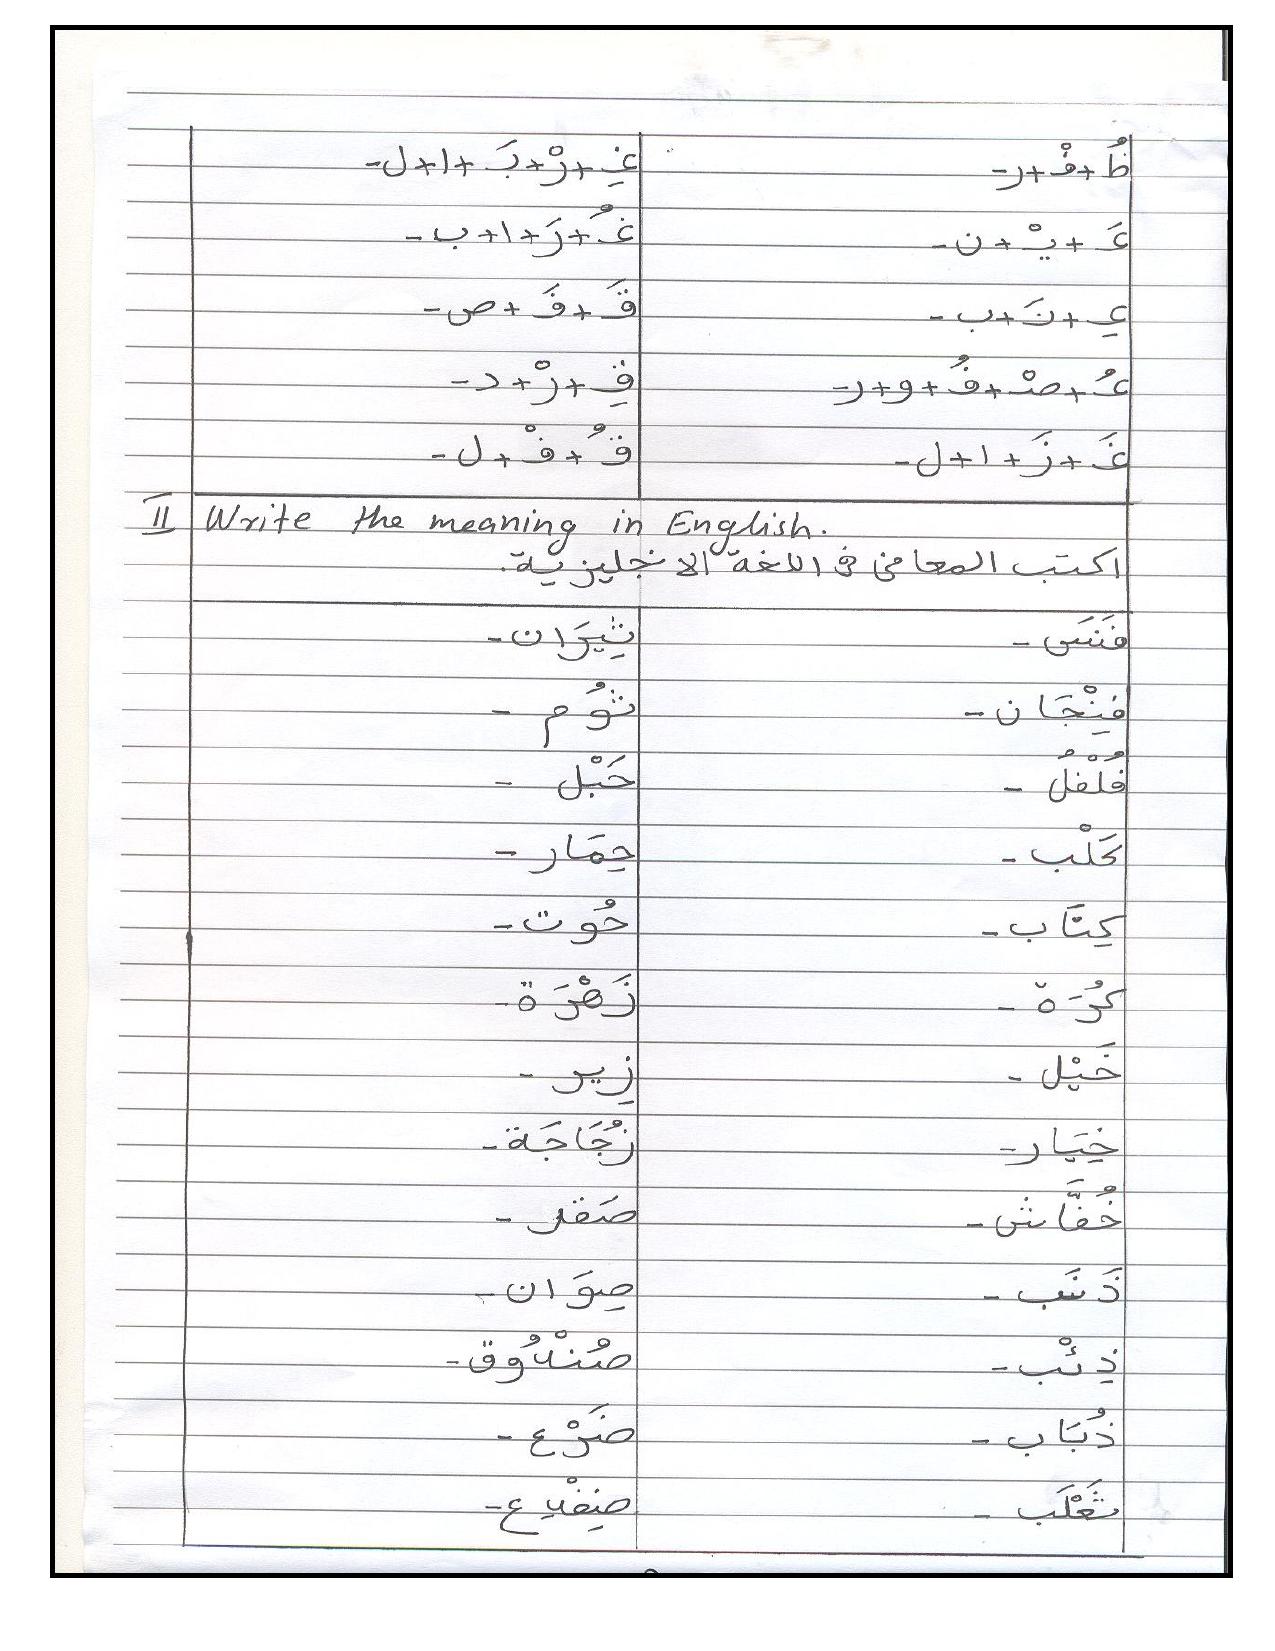 ظُ+فْ+ر- غِ+رْ+بَ+ا+ل-
عَ+يْ+ن- غُ+رَ+ا+ب-
عِ+نَ+ب- قَ+فَ+ص-
عُ+صْ+فُ+و+ر- قِ+رْ+د-
غَ+زَ+ا+ل- قُ+فْ+ل-
II Write the meaning in English.
اكتب المعاني في اللغة الانجليزية.
فَنَسَ- ثِيرَان-
فِنْجَان- ثُوم-
فُلْفُل- حَبْل-
كَلْب- حِمَار-
كِتَاب- حُوت-
كُرَة- زَهْرَة-
خَيْل- زِير-
خِيَار- زُجَاجَة-
خُفَّاش- صَقر-
ذَنَب- صِوَان-
ذِئْب- صُنْدُوق-
ذُبَاب- ضَرْع-
ثَعْلَب- ضِفْدِع-